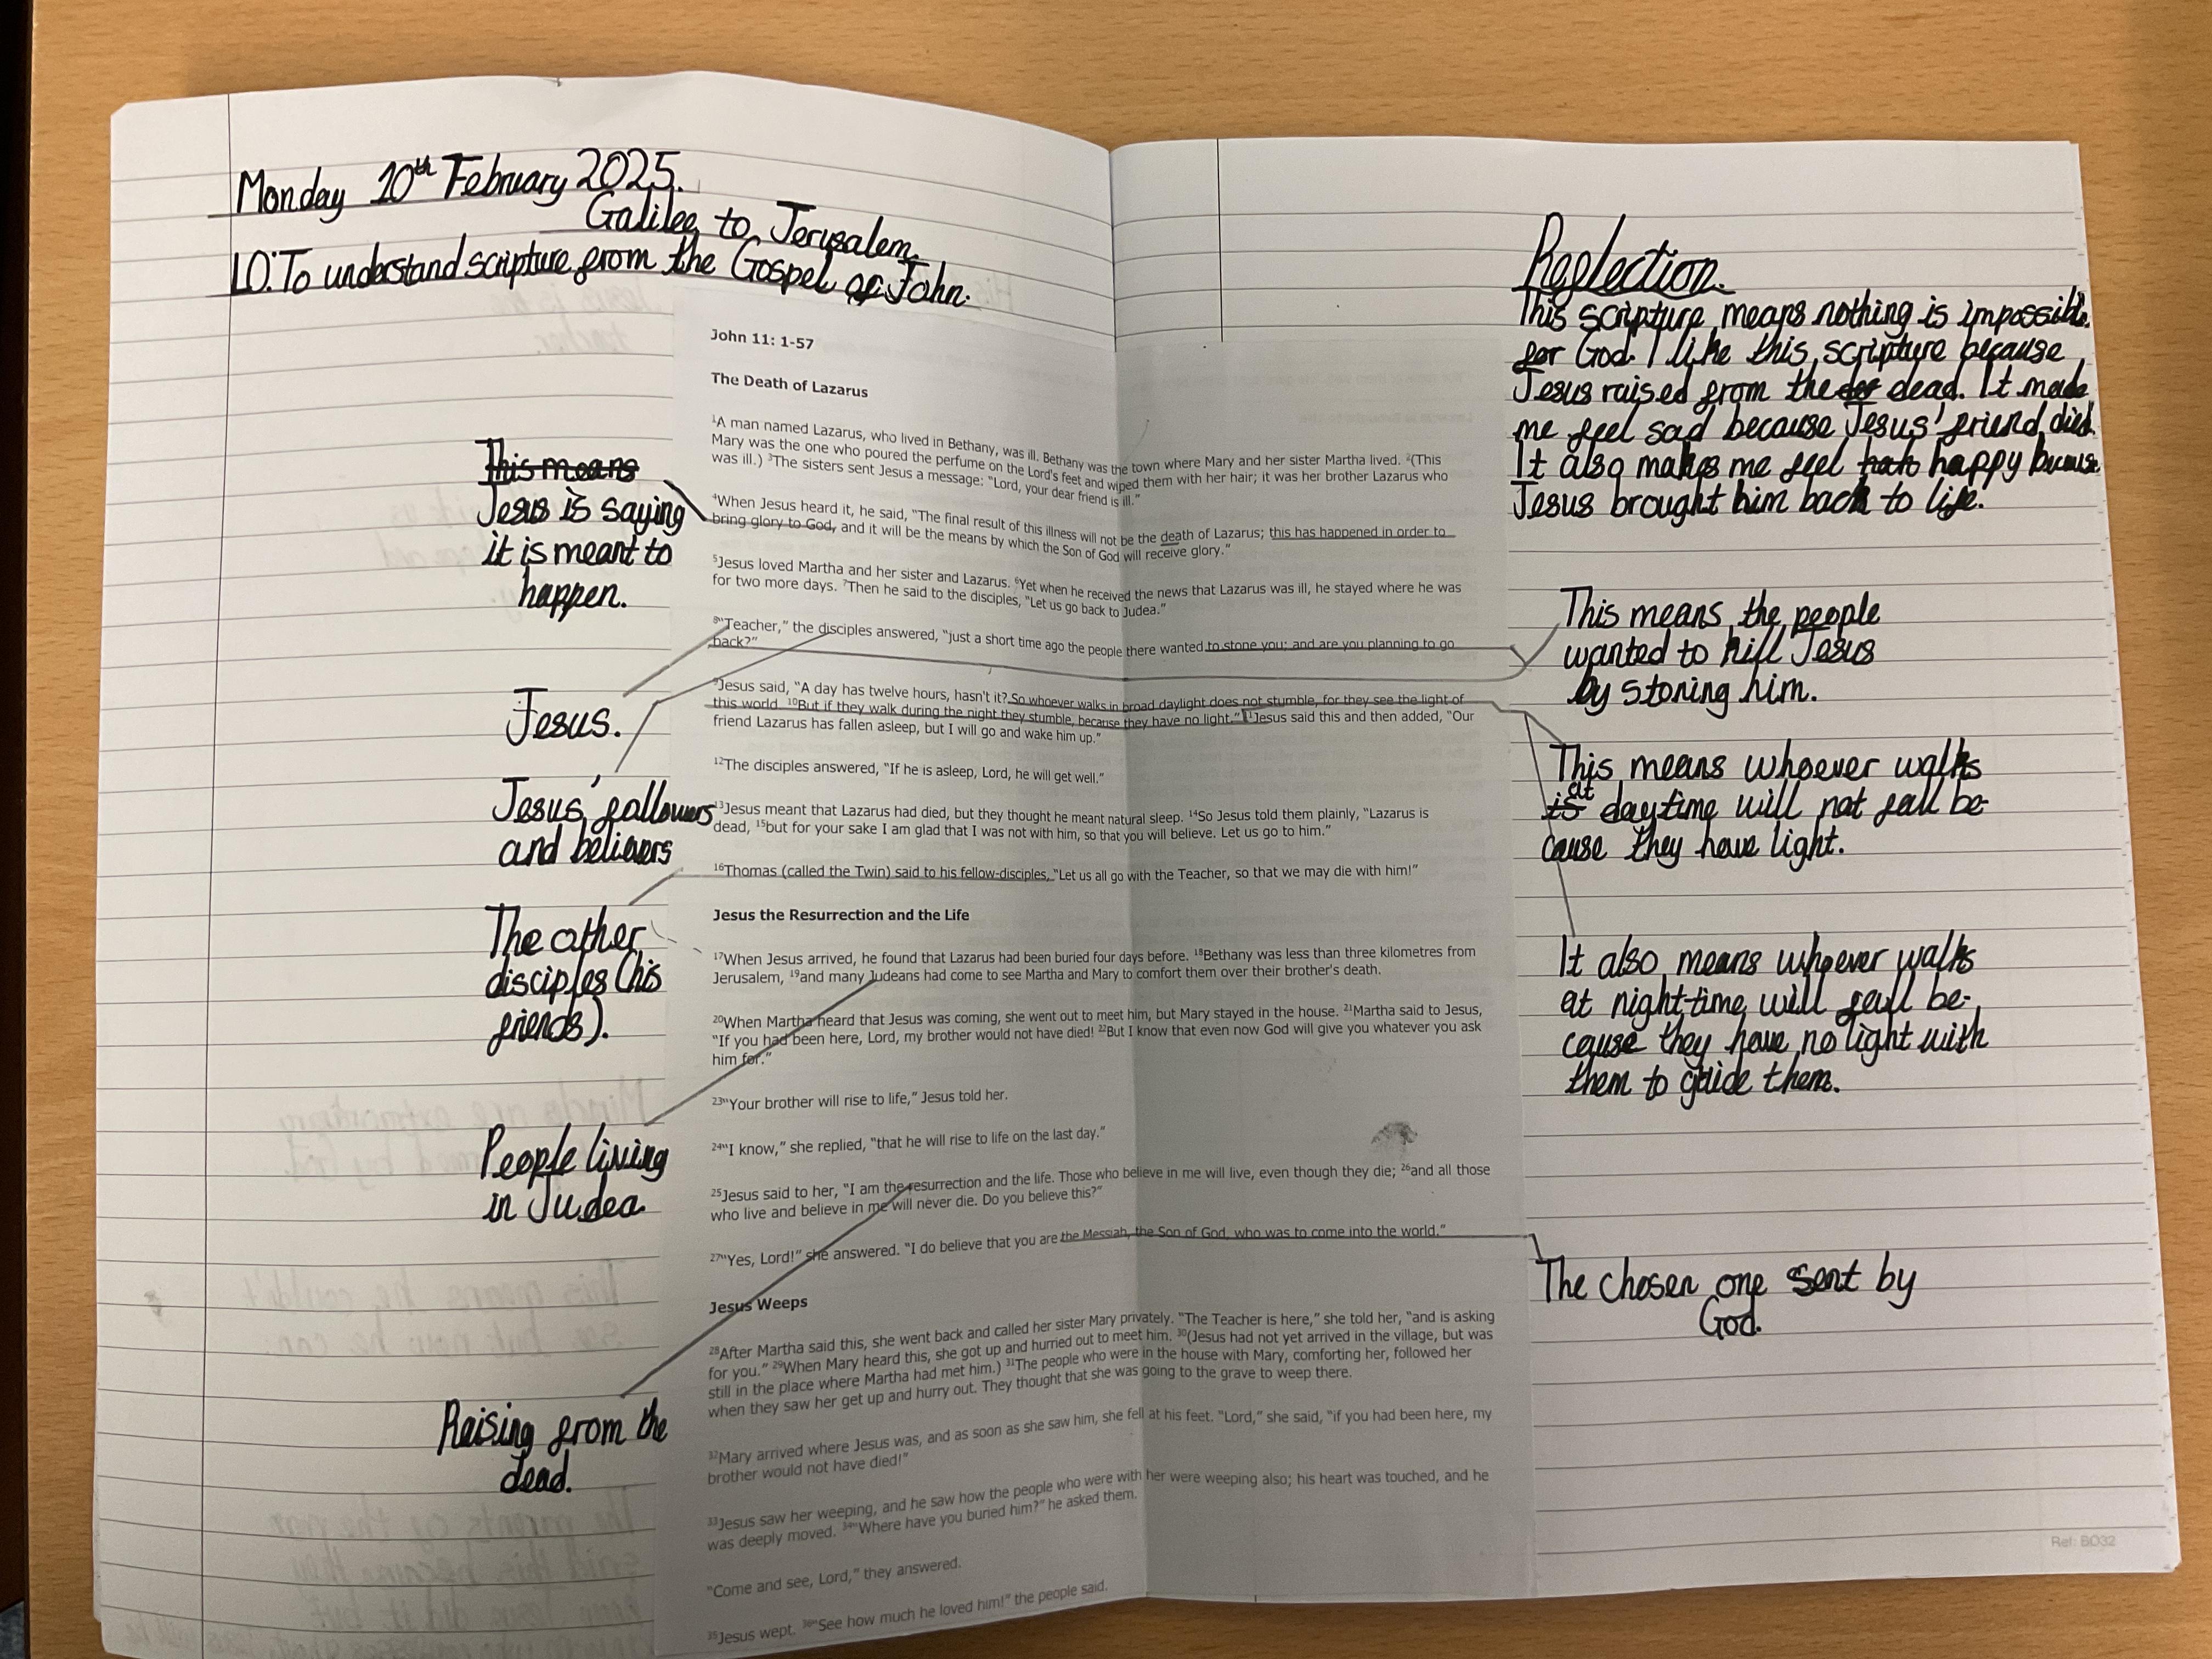 Monday 10th February 2025.
Galilee to Jerusalem.
LO: To understand scripture from the Gospel of John.
This means
Jesus is saying
it is meant to
happen.
Jesus.
Jesus' followers
and believers
The other
disciples (his
friends).
People living
in Judea.
Raising from the
dead.
John 11: 1-57
The Death of Lazarus
1A man named Lazarus, who lived in Bethany, was ill. Bethany was the town where Mary and her sister Martha lived. 2(This
Mary was the one who poured the perfume on the Lord's feet and wiped them with her hair; it was her brother Lazarus who
was ill.) 3The sisters sent Jesus a message: "Lord, your dear friend is ill."
4When Jesus heard it, he said, "The final result of this illness will not be the death of Lazarus; this has happened in order to
bring glory to God, and it will be the means by which the Son of God will receive glory."
5Jesus loved Martha and her sister and Lazarus. 6Yet when he received the news that Lazarus was ill, he stayed where he was
for two more days. 7Then he said to the disciples, "Let us go back to Judea."
8"Teacher," the disciples answered, "just a short time ago the people there wanted to stone you; and are you planning to go
back?"
9Jesus said, "A day has twelve hours, hasn't it? So whoever walks in broad daylight does not stumble, for they see the light of
this world. 10But if they walk during the night they stumble, because they have no light." 11Jesus said this and then added, "Our
friend Lazarus has fallen asleep, but I will go and wake him up."
12The disciples answered, "If he is asleep, Lord, he will get well."
13Jesus meant that Lazarus had died, but they thought he meant natural sleep. 14So Jesus told them plainly, "Lazarus is
dead, 15but for your sake I am glad that I was not with him, so that you will believe. Let us go to him."
16Thomas (called the Twin) said to his fellow-disciples, "Let us all go with the Teacher, so that we may die with him!"
Jesus the Resurrection and the Life
17When Jesus arrived, he found that Lazarus had been buried four days before. 18Bethany was less than three kilometres from
Jerusalem, 19and many Judeans had come to see Martha and Mary to comfort them over their brother's death.
20When Martha heard that Jesus was coming, she went out to meet him, but Mary stayed in the house. 21Martha said to Jesus,
"If you had been here, Lord, my brother would not have died! 22But I know that even now God will give you whatever you ask
him for."
23"Your brother will rise to life," Jesus told her.
24"I know," she replied, "that he will rise to life on the last day."
25Jesus said to her, "I am the resurrection and the life. Those who believe in me will live, even though they die; 26and all those
who live and believe in me will never die. Do you believe this?"
27"Yes, Lord!" she answered. "I do believe that you are the Messiah, the Son of God, who was to come into the world."
Jesus Weeps
28After Martha said this, she went back and called her sister Mary privately. "The Teacher is here," she told her, "and is asking
for you." 29When Mary heard this, she got up and hurried out to meet him. 30(Jesus had not yet arrived in the village, but was
still in the place where Martha had met him.) 31The people who were in the house with Mary, comforting her, followed her
when they saw her get up and hurry out. They thought that she was going to the grave to weep there.
32Mary arrived where Jesus was, and as soon as she saw him, she fell at his feet. "Lord," she said, "if you had been here, my
brother would not have died!"
33Jesus saw her weeping, and he saw how the people who were with her were weeping also; his heart was touched, and he
was deeply moved. 34"Where have you buried him?" he asked them.
"Come and see, Lord," they answered.
35Jesus wept. 36"See how much he loved him!" the people said.
Reflection.
This scripture means nothing is impossible
for God. I like this scripture because
Jesus raised from the dead. It made
me feel sad because Jesus' friend died.
It also makes me feel happy because
Jesus brought him back to life.
This means the people
wanted to kill Jesus
by stoning him.
This means whoever walks
is at daytime will not fall be-
cause they have light.
It also means whoever walks
at night-time will fall be-
cause they have no light with
them to guide them.
The chosen one sent by
God.
Ref: BD32